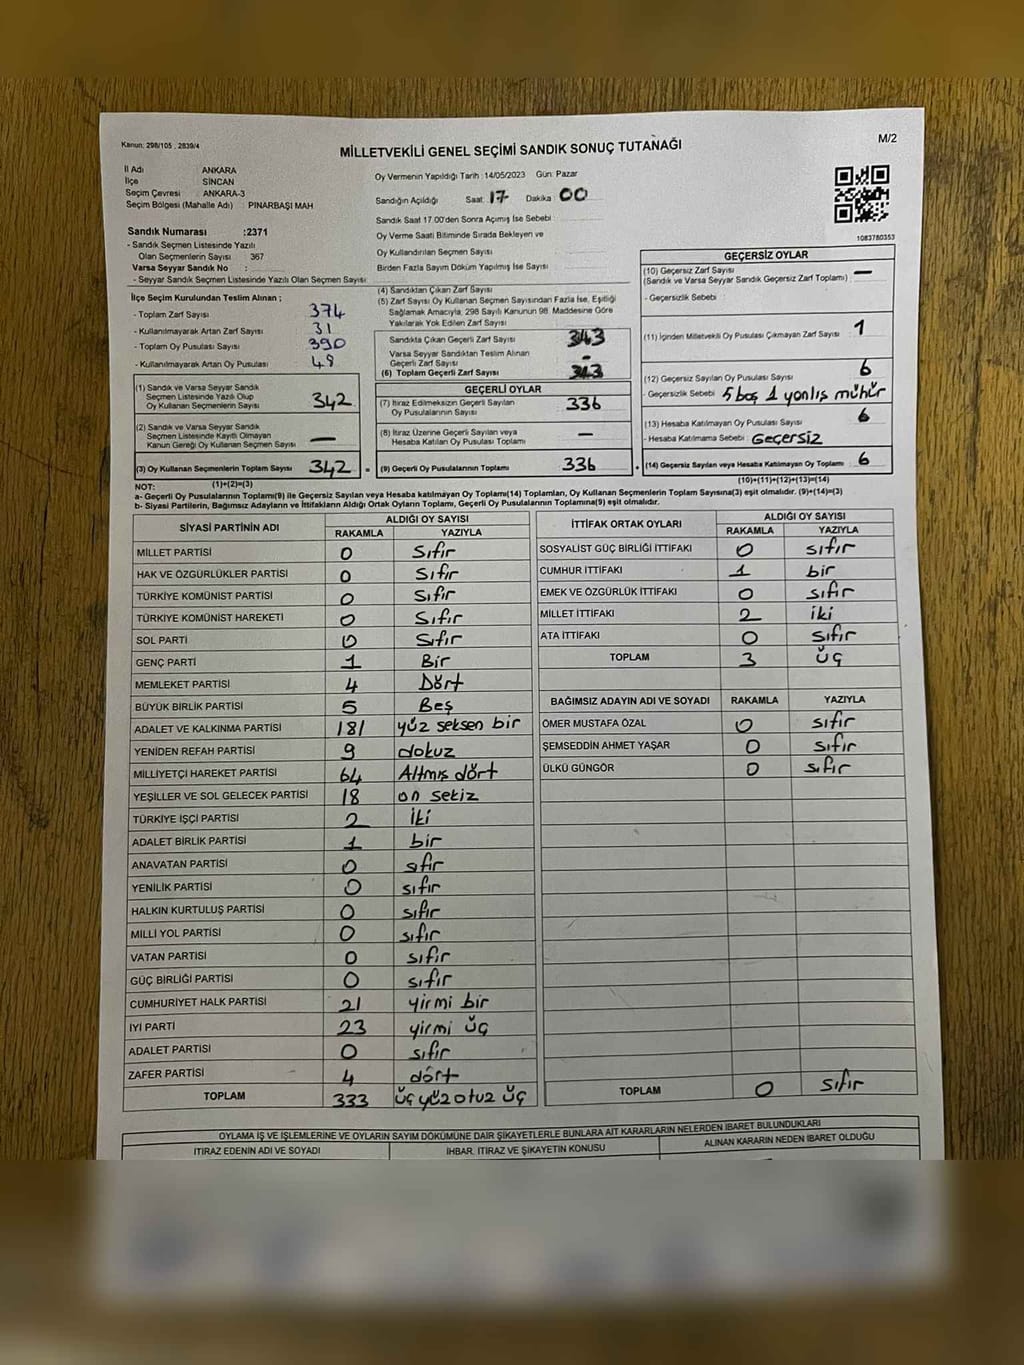 Kanun: 298/105 , 2839/4
M/2
MİLLETVEKİLİ GENEL SEÇİMİ SANDIK SONUÇ TUTANAĞI
İl Adı ANKARA
İlçe SİNCAN
Seçim Çevresi : ANKARA-3
Seçim Bölgesi (Mahalle Adı) : PINARBAŞI MAH
Sandık Numarası :2371
- Sandık Seçmen Listesinde Yazılı
Olan Seçmenlerin Sayısı 367
Varsa Seyyar Sandık No :
- Seyyar Sandık Seçmen Listesinde Yazılı Olan Seçmen Sayısı
Oy Vermenin Yapıldığı Tarih :14/05/2023 Gün: Pazar
Sandığın Açıldığı Saat: 17 Dakika : 00
Sandık Saat 17.00'den Sonra Açımış İse Sebebi :
Oy Verme Saati Bitiminde Sırada Bekleyen ve
Oy Kullandırılan Seçmen Sayısı
Birden Fazla Sayım Döküm Yapılmış İse Sayısı
1083780353
İlçe Seçim Kurulundan Teslim Alınan ;
- Toplam Zarf Sayısı 374
- Kullanılmayarak Artan Zarf Sayısı 31
- Toplam Oy Pusulası Sayısı 390
- Kullanılmayarak Artan Oy Pusulası 48
(1) Sandık ve Varsa Seyyar Sandık
Seçmen Listesinde Yazılı Olup
Oy Kullanan Seçmenlerin Sayısı 342
(2) Sandık ve Varsa Seyyar Sandık
Seçmen Listesinde Kayıtlı Olmayan
Kanun Gereği Oy Kullanan Seçmen Sayısı —
(3) Oy Kullanan Seçmenlerin Toplam Sayısı 342
(1)+(2)=(3)
(4) Sandıktan Çıkan Zarf Sayısı
(5) Zarf Sayısı Oy Kullanan Seçmen Sayısından Fazla İse, Eşitliği
Sağlamak Amacıyla, 298 Sayılı Kanunun 98. Maddesine Göre
Yakılarak Yok Edilen Zarf Sayısı
Sandıkta Çıkan Geçerli Zarf Sayısı 343
Varsa Seyyar Sandıktan Teslim Alınan
Geçerli Zarf Sayısı -
(6) Toplam Geçerli Zarf Sayısı 343
GEÇERLİ OYLAR
(7) İtiraz Edilmeksizin Geçerli Sayılan
Oy Pusulalarının Sayısı 336
(8) İtiraz Üzerine Geçerli Sayılan ve
Hesaba Katılan Oy Pusulaları Toplamı —
(9) Geçerli Oy Pusulalarının Toplamı 336
GEÇERSİZ OYLAR
(10) Geçersiz Zarf Sayısı —
(Sandık ve Varsa Seyyar Sandık Geçersiz Zarf Toplamı)
- Geçersizlik Sebebi
(11) İçinden Milletvekili Oy Pusulası Çıkmayan Zarf Sayısı 1
(12) Geçersiz Sayılan Oy Pusulası Sayısı 6
- Geçersizlik Sebebi 5 boş 1 yanlış mühür
(13) Hesaba Katılmayan Oy Pusulası Sayısı 6
- Hesaba Katılmama Sebebi : Geçersiz
(14) Geçersiz Sayılan veya Hesaba Katılmayan Oy Toplamı 6
(10)+(11)+(12)+(13)=(14)
NOT:
a- Geçerli Oy Pusulalarının Toplamı(9) ile Geçersiz Sayılan veya Hesaba katılmayan Oy Toplamı(14) Toplamları, Oy Kullanan Seçmenlerin Toplam Sayısına(3) eşit olmalıdır. (9)+(14)=(3)
b- Siyasi Partilerin, Bağımsız Adayların ve İttifakların Aldığı Ortak Oyların Toplamı, Geçerli Oy Pusulalarının Toplamına(9) eşit olmalıdır.
SİYASİ PARTİNİN ADI ALDIĞI OY SAYISI
RAKAMLA YAZIYLA
MİLLET PARTİSİ 0 sıfır
HAK VE ÖZGÜRLÜKLER PARTİSİ 0 sıfır
TÜRKİYE KOMÜNİST PARTİSİ 0 sıfır
TÜRKİYE KOMÜNİST HAREKETİ 0 sıfır
SOL PARTİ 0 sıfır
GENÇ PARTİ 1 Bir
MEMLEKET PARTİSİ 4 Dört
BÜYÜK BİRLİK PARTİSİ 5 Beş
ADALET VE KALKINMA PARTİSİ 181 yüz seksen bir
YENİDEN REFAH PARTİSİ 9 dokuz
MİLLİYETÇİ HAREKET PARTİSİ 64 Altmış dört
YEŞİLLER VE SOL GELECEK PARTİSİ 18 on sekiz
TÜRKİYE İŞÇİ PARTİSİ 2 İki
ADALET BİRLİK PARTİSİ 1 bir
ANAVATAN PARTİSİ 0 sıfır
YENİLİK PARTİSİ 0 sıfır
HALKIN KURTULUŞ PARTİSİ 0 sıfır
MİLLİ YOL PARTİSİ 0 sıfır
VATAN PARTİSİ 0 sıfır
GÜÇ BİRLİĞİ PARTİSİ 0 sıfır
CUMHURİYET HALK PARTİSİ 21 yirmi bir
İYİ PARTİ 23 yirmi üç
ADALET PARTİSİ 0 sıfır
ZAFER PARTİSİ 4 dört
TOPLAM 333 üç yüz otuz üç
İTTİFAK ORTAK OYLARI ALDIĞI OY SAYISI
RAKAMLA YAZIYLA
SOSYALİST GÜÇ BİRLİĞİ İTTİFAKI 0 sıfır
CUMHUR İTTİFAKI 1 bir
EMEK VE ÖZGÜRLÜK İTTİFAKI 0 sıfır
MİLLET İTTİFAKI 2 iki
ATA İTTİFAKI 0 sıfır
TOPLAM 3 üç
BAĞIMSIZ ADAYIN ADI VE SOYADI RAKAMLA YAZIYLA
ÖMER MUSTAFA ÖZAL 0 sıfır
ŞEMSEDDİN AHMET YAŞAR 0 sıfır
ÜLKÜ GÜNGÖR 0 sıfır
TOPLAM 0 sıfır
OYLAMA İŞ VE İŞLEMLERİNE VE OYLARIN SAYIM DÖKÜMÜNE DAİR ŞİKAYETLERLE BUNLARA AİT KARARLARIN NELERDEN İBARET BULUNDUKLARI
İTİRAZ EDENİN ADI VE SOYADI İHBAR, İTİRAZ VE ŞİKAYETİN KONUSU ALINAN KARARIN NEDEN İBARET OLDUĞU